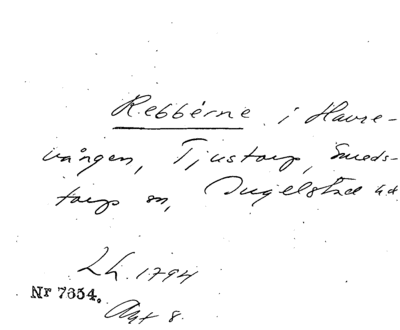 Rebbérne i Havre-
vången, Tjustorp, Smeds-
torps sn, Ingelstad hd
Lh. 1794
Nr 7654.
Akt 8.